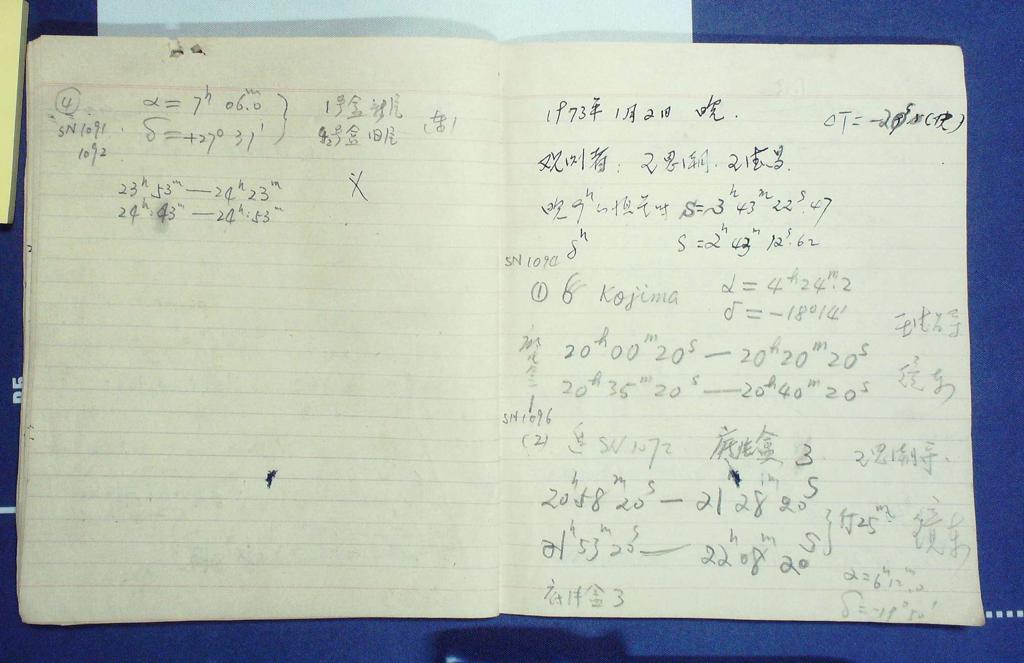 ④
SN1091
1092
α = 7ʰ 06ᵐ.0
δ = +27° 31'
1号盒新片
2号盒旧片
23ʰ 53ᵐ — 24ʰ 23ᵐ
24ʰ 43ᵐ — 24ʰ 53ᵐ
1973年1月2日 晚.
观测者: 王思潮.
晚9ʰ S=3ʰ 43ᵐ 22ˢ.47
8ʰ S=2ʰ 43ᵐ 12ˢ.62
① Kojima
α = 4ʰ24ᵐ.2
δ = -18°14'
20ʰ00ᵐ20ˢ — 20ʰ20ᵐ20ˢ
20ʰ35ᵐ20ˢ — 20ʰ40ᵐ20ˢ
镜东
SN1096
(2) SN1072 底片盒 3 王思潮导.
20ʰ58ᵐ20ˢ — 21ʰ28ᵐ20ˢ
21ʰ53ᵐ20ˢ — 22ʰ08ᵐ20ˢ
25ᵐ
镜东
底片盒 3
α=6ʰ12ᵐ.2
δ=-19°50'